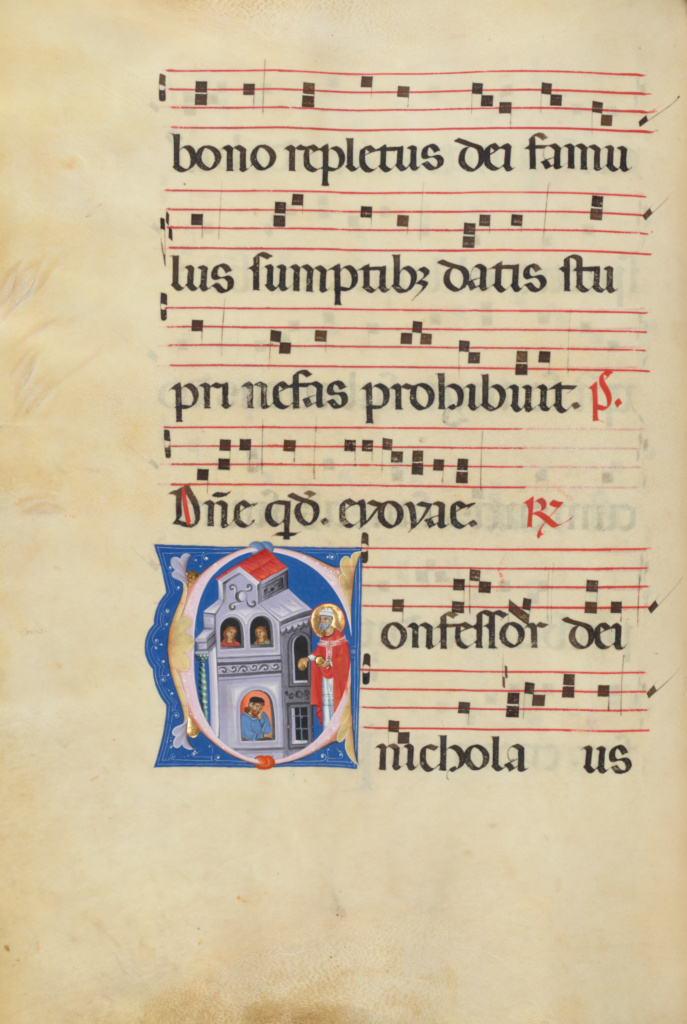 bono repletus dei famu
lus sumptibꝫ datis stu
pri nefas prohibuit. p̃s.
Dñe qđ. evovae. ℟
Confessor dei
nichola us